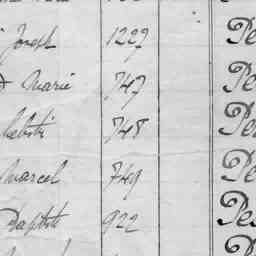 Joseph 1229 Pe
Marie 747 Pe
748 Pe
Marcel 749 Pe
Baptiste 922 Pe